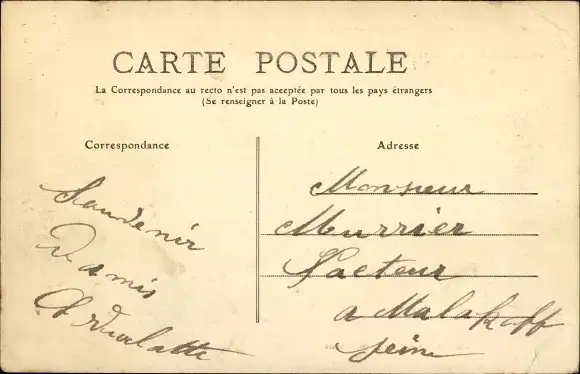 CARTE POSTALE
La Correspondance au recto n'est pas acceptée par tous les pays étrangers
(Se renseigner à la Poste)
Correspondance
Adresse
Souvenir
D'amis
Monsieur
Meurrier
Facteur
a Malakoff
Seine